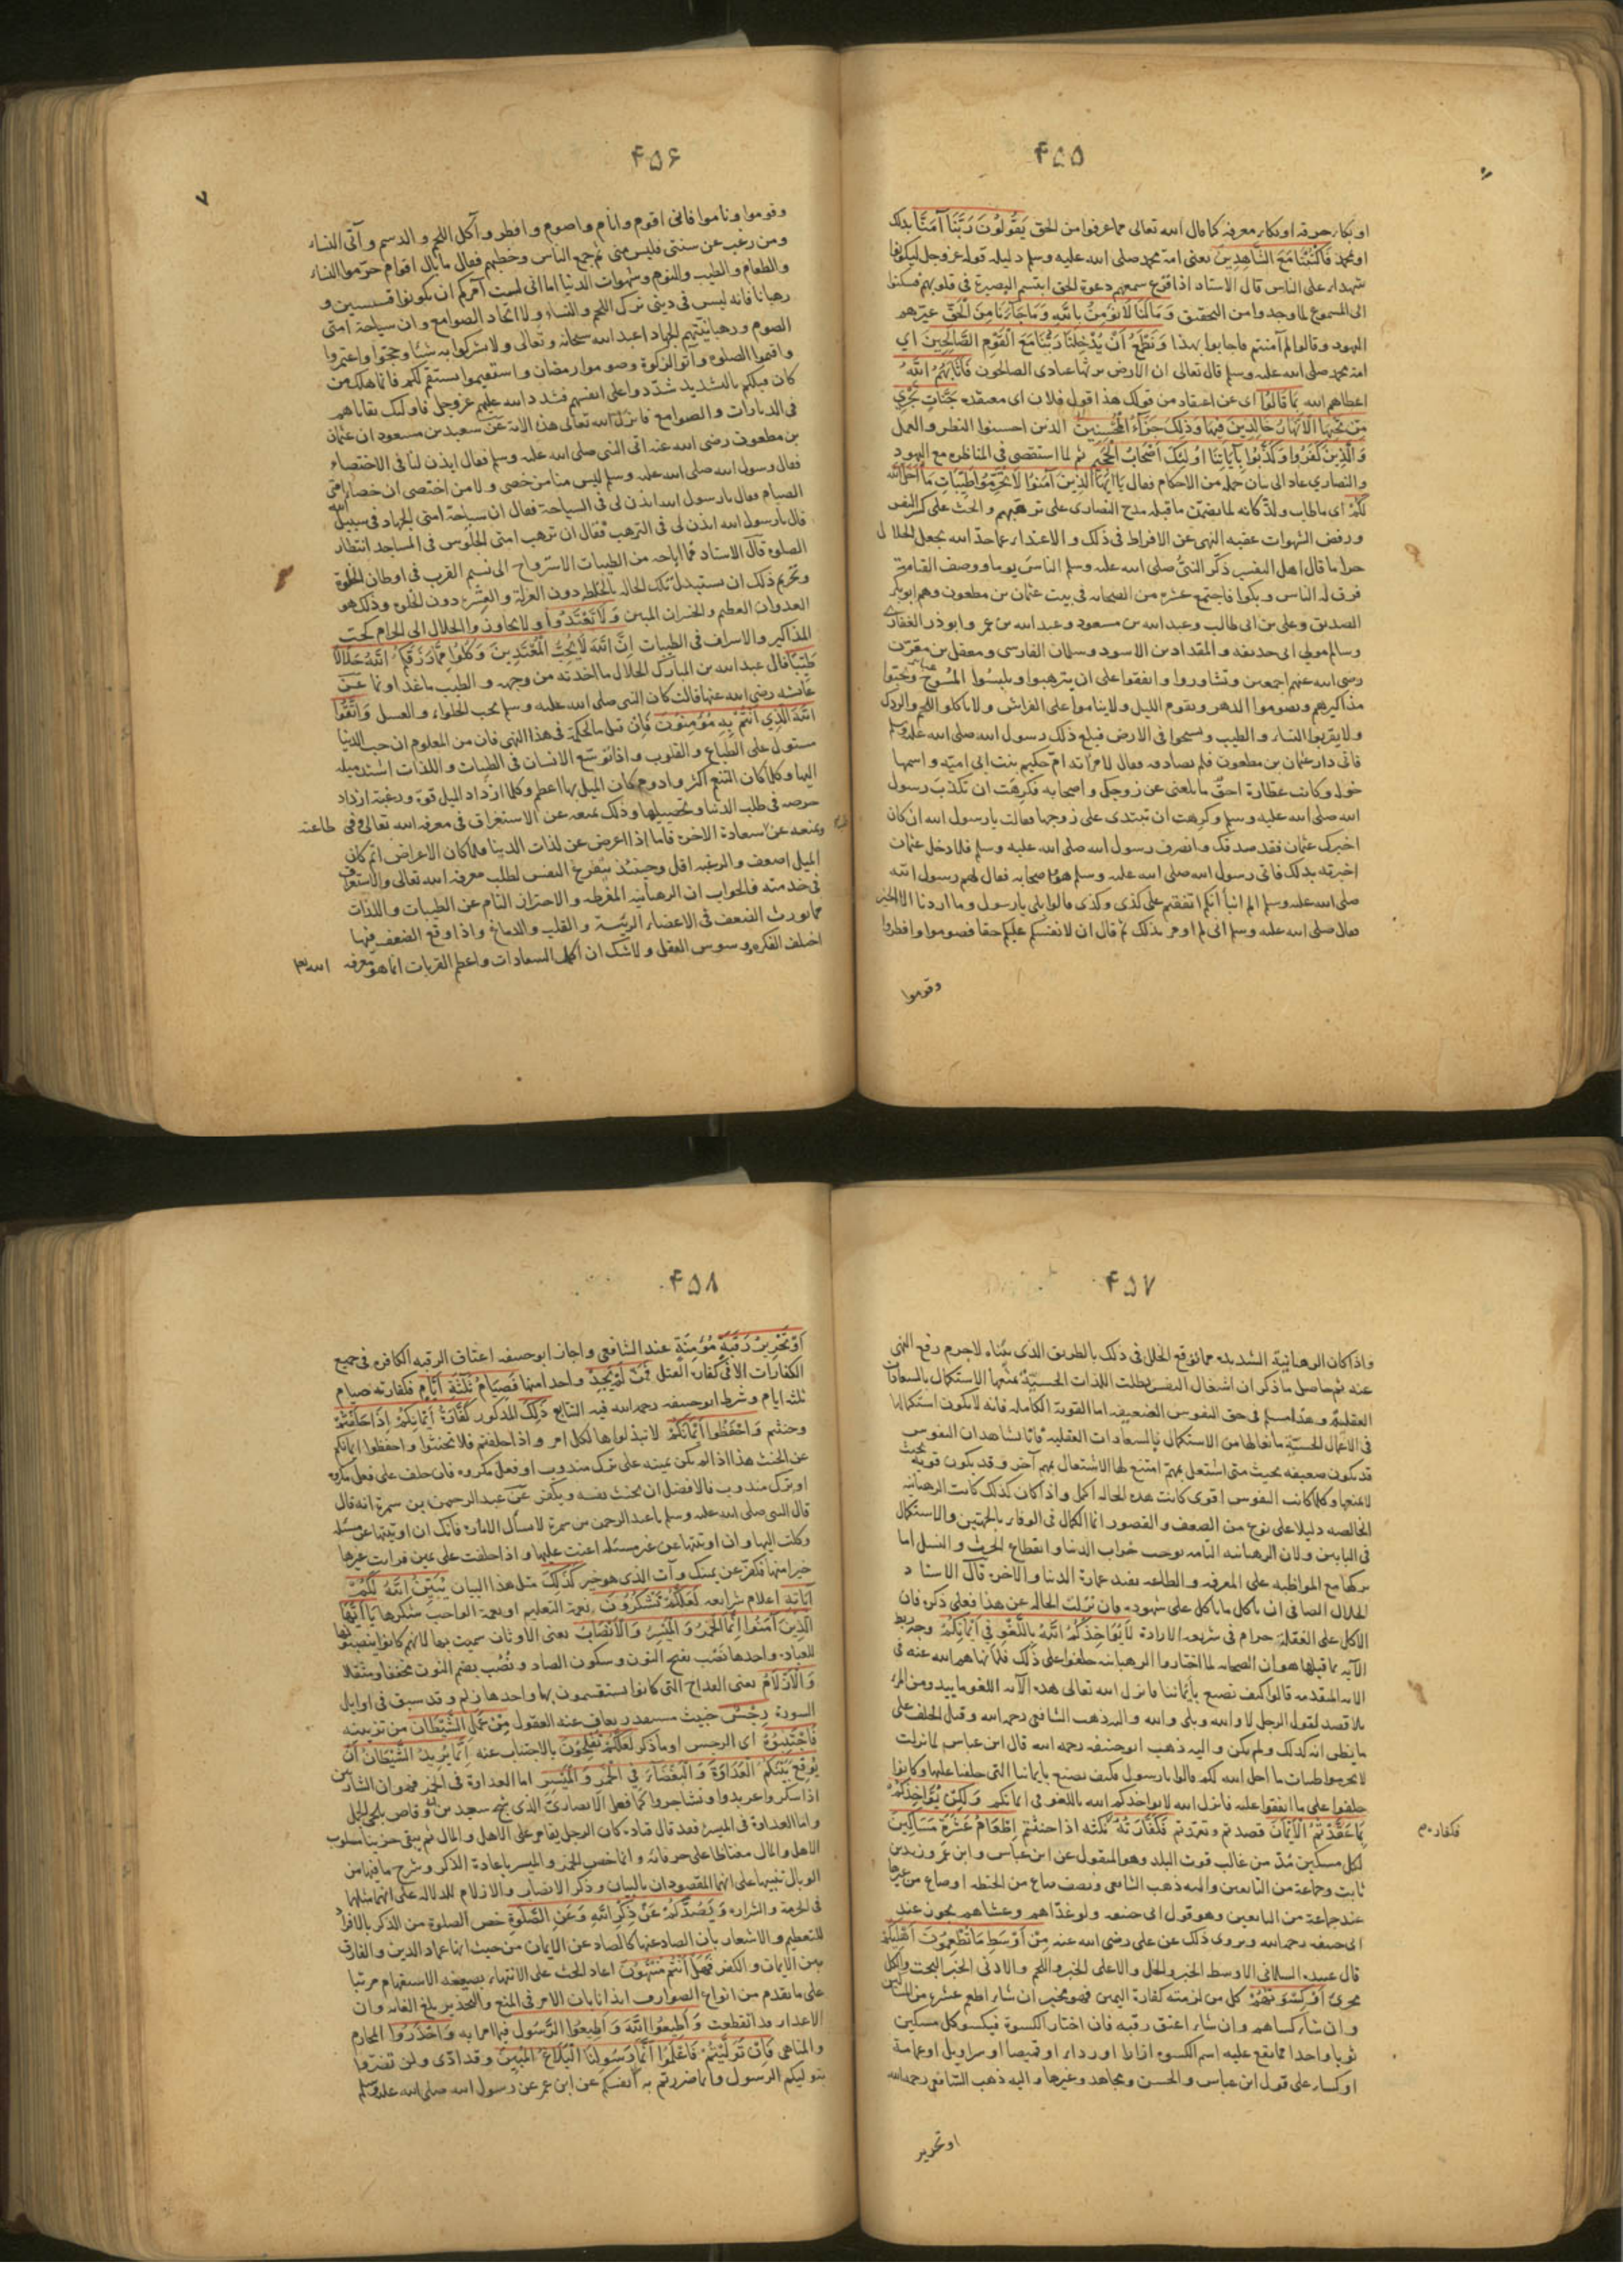 ۴۵۵
او بكاء حرقه او بكاء معرفه كما قال الله تعالى مما عرفوا من الحق يَقُولُونَ رَبَّنَا آمَنَّا بذلك
او بمحمد فَاكْتُبْنَا مَعَ الشَّاهِدِينَ يعنى امة محمد صلى الله عليه وسلم دليله قوله عز وجل ليكونوا
شهداء على الناس قال الاستاد اذا قرع سمعهم دعوة الحق ابتسم البصيرة فى قلوبهم فسكنوا
الى المسموع لما وجدوا من التحقيق وَمَا لَنَا لَا نُؤْمِنُ بِاللَّهِ وَمَا جَاءَنَا مِنَ الْحَقِّ عيّرهم
اليهود وقالوا لم آمنتم فاجابوا بهذا وَنَطْمَعُ أَنْ يُدْخِلَنَا رَبُّنَا مَعَ الْقَوْمِ الصَّالِحِينَ اى
امة محمد صلى الله عليه وسلم قال تعالى ان الارض يرثها عبادى الصالحون فَأَثَابَهُمُ اللَّهُ
اعطاهم الله بِمَا قَالُوا اى عن اعتقاد من قولك هذا قول فلان اى معتقده جَنَّاتٍ تَجْرِي
مِنْ تَحْتِهَا الْأَنْهَارُ خَالِدِينَ فِيهَا وَذَلِكَ جَزَاءُ الْمُحْسِنِينَ الذين احسنوا النظر والعمل
وَالَّذِينَ كَفَرُوا وَكَذَّبُوا بِآيَاتِنَا أُولَئِكَ أَصْحَابُ الْجَحِيمِ ثم لما استقصى فى المناظره مع اليهود
والنصارى عاد الى بيان جمله من الاحكام فقال يَا أَيُّهَا الَّذِينَ آمَنُوا لَا تُحَرِّمُوا طَيِّبَاتِ مَا أَحَلَّ اللَّهُ
لَكُمْ اى ما طاب ولذ كانه لما تضمن ما قبله مدح النصارى على ترهبهم والحث على كسر النفس
ورفض الشهوات عقبه النهى عن الافراط فى ذلك والاعتداء عما حد الله بجعل الحلال
حراما قال اهل التفسير ذكّر النبىّ صلى الله عليه وسلم الناس يوما ووصف القيامة
فرق له الناس وبكوا فاجتمع عشره من الصحابه فى بيت عثمان بن مطعون وهم ابو بكر
الصديق وعلى بن ابى طالب وعبد الله بن مسعود وعبد الله بن عمر وابو ذر الغفارى
وسالم مولى ابى حذيفه والمقداد بن الاسود وسلمان الفارسى ومعقل بن مقرّن
رضى الله عنهم اجمعين وتشاوروا واتفقوا على ان يترهبوا ويلبسُوا المُسُوحَ ويجبّوا
مذاكيرهم ويصوموا الدهر ويقوم الليل ولا يناموا على الفراش ولا ياكلوا اللحم والودك
ولا يقربوا النساء والطيب ويسيحوا فى الارض فبلغ ذلك رسول الله صلى الله عليه وسلم
فاتى دار عثمان بن مطعون فلم يصادفه فقال لامرأته ام حكيم بنت ابى اميّه واسمها
خوله وكانت عطارة احقٌ ما بلغنى عن زوجك واصحابه فكرهت ان تكذبَ رسول
الله صلى الله عليه وسلم وكرهت ان تبتدى على زوجها فقالت يا رسول الله ان كان
اخبرك عثمان فقد صدقك وانصرف رسول الله صلى الله عليه وسلم فلما دخل عثمان
اخبرته بذلك فاتى رسول الله صلى الله عليه وسلم هو واصحابه فقال لهم رسول الله
صلى الله عليه وسلم الم انبأ انكم اتفقتم على كذى وكذى قالوا بلى يا رسول وما اردنا الا الخير
فقال صلى الله عليه وسلم انى لم اومر بذلك ثم قال ان لانفسكم عليكم حقا فصوموا وافطروا
وقوموا
۴۵۶
۷
وقوموا وناموا فانى اقوم وانام واصوم وافطر وآكل اللحم والدسم وآتى النساء
ومن رغب عن سنتى فليس منى ثم جمع الناس وخطبهم فقال ما بال اقوام حرّموا النساء
والطعام والطيب والنوم وشهوات الدنيا اما انى لست آمركم ان تكونوا قسيسين و
رهبانا فانه ليس فى دينى ترك اللحم والنساء ولا اتخاد الصوامع وان سياحة امتى
الصوم ورهبانيّتهم الجهاد اعبد الله سبحانه وتعالى ولا تشركوا به شئا وحجّوا واعتمروا
واقيموا الصلوة وآتوا الزكوة وصوموا رمضان واستقيموا يستقم لكم فانما هلك من
كان قبلكم بالتشديد شدّدوا على انفسهم فشدد الله عليهم عز وجل فاولئك بقاياهم
فى الديارات والصوامع فانزل الله تعالى هذه الاية عن سعيد بن مسعود ان عثمان
بن مطعون رضى الله عنه اتى النبى صلى الله عليه وسلم فقال ايذن لنا فى الاختصاء
فقال رسول الله صلى الله عليه وسلم ليس منا من خصى ولا من اختصى ان خصاء امتى
الصيام فقال يا رسول الله ائذن لى فى السياحة فقال ان سياحة امتى الجهاد فى سبيل الله
قال يا رسول الله ايذن لى فى الترهب فقال ان ترهب امتى الجلوس فى المساجد انتظار
الصلوة قال الاستاد مما اباحه من الطيبات الاسترواح الى نسيم القرب فى اوطان الخلوة
وتحريم ذلك ان يستبدل تلك الحاله بالخلطه دون العزلة والعِشرة دون الخلوه وذلك هو
العدوان العظيم والخسران المبين وَلَا تَعْتَدُوا ولا تجاوزوا الحلال الى الحرام كجبّ
المذاكير والاسراف فى الطيبات إِنَّ اللَّهَ لَا يُحِبُّ الْمُعْتَدِينَ وَكُلُوا مِمَّا رَزَقَكُمُ اللَّهُ حَلَالًا
طَيِّبًا قال عبد الله بن المبارك الحلال ما اخذته من وجهه والطيب ما غذا ونما عن
عائشه رضى الله عنها قالت كان النبى صلى الله عليه وسلم يحب الحلواء والعسل وَاتَّقُوا
اللَّهَ الَّذِي أَنْتُمْ بِهِ مُؤْمِنُونَ فإن قيل ما الحكمة فى هذا النهى فان من المعلوم ان حب الدنيا
مستول على الطباع والقلوب واذا توسّع الانسان فى الطيبات واللذات اشتد ميله
اليها وكلما كان التنعم اكثر وادوم كان الميل بها اعظم وكلما ازداد الميل قوة ورغبة ازداد
حرصه فى طلب الدنيا وتحصيلها وذلك يمنعه عن الاستغراق فى معرفه الله تعالى وفى طاعته
ويمنعه عن سعادة الاخره فاما اذا اعرض عن لذات الدنيا فلما كان الاعراض اتم كان
الميل اضعف والرغبه اقل وحينئذ يتفرغ النفس لطلب معرفه الله تعالى والاستغراق
فى خدمته فالجواب ان الرهبانيه المفرطه والاحتراز التام عن الطيبات واللذات
مما يورث الضعف فى الاعضاء الرئيسة والقلب والدماغ واذا وقع الضعف فيها
اختلف الفكره وسوس العقل ولا شك ان اكمل السعادات واعظم القربات انما هو معرفه الله تعا
۴۵۷
واذا كان الرهبانية الشديده مما توقع الخلل فى ذلك بالطريق الذى بيّناه لا جرم رفع النهى
عنه ثم حاصل ما ذكر ان اشتغال النفس بطلب اللذات الحسيّة يمنعها الاستكمال بالسعادات
العقلية وهذا مسلم فى حق النفوس الضعيفه اما القوية الكامله فانه لا يكون استكمالها
فى الاعمال الحسيّه مانعا لها من الاستكمال بالسعادات العقليه فانا نشاهد ان النفوس
قد يكون ضعيفه بحيث متى اشتغل بمهمّ امتنع لها الاشتغال بمهم آخر وقد يكون قوية بحيث
لا يمنعها وكلما كانت النفوس اقوى كانت هذه الحاله اكمل واذا كان كذلك كانت الرهبانيه
الخالصه دليلا على نوع من الضعف والقصور انما الكمال فى الوفاء بالجهتين والاستكمال
فى البابين ولان الرهبانيه التامه توجب خراب الدنيا وانقطاع الحرث والنسل اما
تركها مع المواظبه على المعرفه والطاعه يفيد عمارة الدنيا والاخره قال الاستاد
الحلال الصافى ان ياكل ما ياكل على شهوده فان نزلت الحاله عن هذا فعلى ذكره فان
الاكل على الغفلة حرام فى شريعه الارادة لَا يُؤَاخِذُكُمُ اللَّهُ بِاللَّغْوِ فِي أَيْمَانِكُمْ وجه ربط
الآيه بما قبلها هو ان الصحابه لما اختاروا الرهبانيه حلفوا على ذلك فلما نهاهم الله عنه فى
الايه المتقدمه قالوا كيف نصنع بأيماننا فانزل الله تعالى هذه الآيه اللغو ما يبدو من المرء
بلا قصد لقول الرجل لا والله وبلى والله واليه ذهب الشافعى رحمه الله وقيل الحلف على
ما يظن انه كذلك ولم يكن واليه ذهب ابو حنيفه رحمه الله قال ابن عباس لما نزلت
لا تحرموا طيبات ما احل الله لكم قالوا يا رسول فكيف نصنع بايماننا التى حلفنا عليها وكانوا
حلفوا على ما اتفقوا عليه فانزل الله لا يؤاخذكم الله باللغو فى ايمانكم وَلَكِنْ يُؤَاخِذُكُمْ
بِمَا عَقَّدْتُمُ الْأَيْمَانَ قصدتم وتعمدتم فَكَفَّارَتُهُ نكثه اذا حنثتم إِطْعَامُ عَشَرَةِ مَسَاكِينَ
لكل مسكين مُدّ من غالب قوت البلد وهو المنقول عن ابن عباس وابن عمر وزيد بن
ثابت وجماعة من التابعين واليه ذهب الشافعى ونصف صاع من الحنطه او صاع من غيرها
عند جماعة من التابعين وهو قول ابى حنيفه ولو غدّاهم وعشاهم يجوز عند
ابى حنيفه رحمه الله ويروى ذلك عن على رضى الله عنه مِنْ أَوْسَطِ مَا تُطْعِمُونَ أَهْلِيكُمْ
قال عبيده السلمانى الاوسط الخبز والخل والاعلى الخبز واللحم والادنى الخبز البحت والكل
مجزئ أَوْ كِسْوَتُهُمْ كل من لزمته كفارة اليمين فهو مخير ان شاء اطعم عشره من المساكين
وان شاء كساهم وان شاء اعتق رقبه فان اختار الكسوة فيكسو كل مسكين
ثوبا واحدا مما يقع عليه اسم الكسوه ازارا او رداء او قميصا او سراويل او عمامة
او كساء على قول ابن عباس والحسن ومجاهد وغيرها واليه ذهب الشافعى رحمه الله
او تحرير
۴۵۸
أَوْ تَحْرِيرُ رَقَبَةٍ مُؤْمِنَةٍ عند الشافعى واجاز ابو حنيفه اعتاق الرقبه الكافره فى جميع
الكفارات الا فى كفارة القتل فَمَنْ لَمْ يَجِدْ واحدا منها فَصِيَامُ ثَلَثَةِ أَيَّامٍ فكفارته صيام
ثلثه ايام وشرط ابو حنيفه رحمه الله فيه التتابع ذَلِكَ المذكور كَفَّارَةُ أَيْمَانِكُمْ إِذَا حَلَفْتُمْ
وحنثتم وَاحْفَظُوا أَيْمَانَكُمْ لا تبذلوها لكل امر واذا حلفتم فلا تحنثوا واحفظوا ايمانكم
عن الحنث هذا اذا لم يكن يمينه على ترك مندوب او فعل مكروه فان حلف على فعل مكروه
او ترك مندوب فالافضل ان يحنث نفسه ويكفر عن عبد الرحمن بن سمرة انه قال
قال النبى صلى الله عليه وسلم يا عبد الرحمن بن سمرة لا تسأل الامارة فانك ان اوتيتها عن مسئله
وكلت اليها وان اوتيتها عن غير مسئله اعنت عليها واذا حلفت على يمين فرايت غيرها
خيرا منها فكفر عن يمينك وآت الذى هو خير كَذَلِكَ مثل هذا البيان يُبَيِّنُ اللَّهُ لَكُمْ
آيَاتِهِ اعلام شرايعه لَعَلَّكُمْ تَشْكُرُونَ نعمة التعليم او نعمة الواجب شكرها يَا أَيُّهَا
الَّذِينَ آمَنُوا إِنَّمَا الْخَمْرُ وَالْمَيْسِرُ وَالْأَنْصَابُ يعنى الاوثان سميت بها لانهم كانوا ينصبونها
للعباده واحدها نَصْب بفتح النون وسكون الصاد ونُصُب بضم النون مخففا ومثقلا
وَالْأَزْلَامُ يعنى القداح التى كانوا يستقسمون بها واحدها زلم وقد سبق فى اوايل
السورة رِجْسٌ خبيث مستقذر يعاف عنه العقول مِنْ عَمَلِ الشَّيْطَانِ من تزيينه
فَاجْتَنِبُوهُ اى الرجس او ما ذكر لَعَلَّكُمْ تُفْلِحُونَ بالاجتناب عنه إِنَّمَا يُرِيدُ الشَّيْطَانُ أَنْ
يُوقِعَ بَيْنَكُمُ الْعَدَاوَةَ وَالْبَغْضَاءَ فِي الْخَمْرِ وَالْمَيْسِرِ اما العداوة فى الخمر فهو ان الشاربين
اذا سكروا عربدوا وتشاجروا كما فعل الانصارى الذى شجّ سعيد بن وقاص بلحى الجمل
واما العداوة فى الميسر فقد قال قتاده كان الرجل يقامر على الاهل والمال ثم يبقى حزينا مسلوب
الاهل والمال مغتاظا على حرفائه وانما خص الخمر والميسر باعادة الذكر وشرح ما فيها من
الوبال تنبيها على انهما المقصودان بالبيان وذكر الانصاب والازلام للدلاله على انهما مثلها
فى الحرمة والشراره وَيَصُدَّكُمْ عَنْ ذِكْرِ اللَّهِ وَعَنِ الصَّلَوةِ خص الصلوة من الذكر بالافراد
للتعظيم والاشعار بان الصاد عنها كالصاد عن الايمان من حيث انها عماد الدين والفارق
بين الايمان والكفر فَهَلْ أَنْتُمْ مُنْتَهُونَ اعاد الحث على الانتهاء بصيغه الاستفهام مرتبا
على ما تقدم من انواع الصوارف ايذانا بان الامر فى المنع والتحذير بلغ الغايه وان
الاعذار قد انقطعت وَأَطِيعُوا اللَّهَ وَأَطِيعُوا الرَّسُولَ فيما امرا به وَاحْذَرُوا المحارم
والمناهى فَإِنْ تَوَلَّيْتُمْ فَاعْلَمُوا أَنَّمَا عَلَى رَسُولِنَا الْبَلَاغُ الْمُبِينُ وقد ادّى ولن تضرّوا
بتوليكم الرسول وانما ضررتم به انفسكم عن ابن عمر عن رسول الله صلى الله عليه وسلم